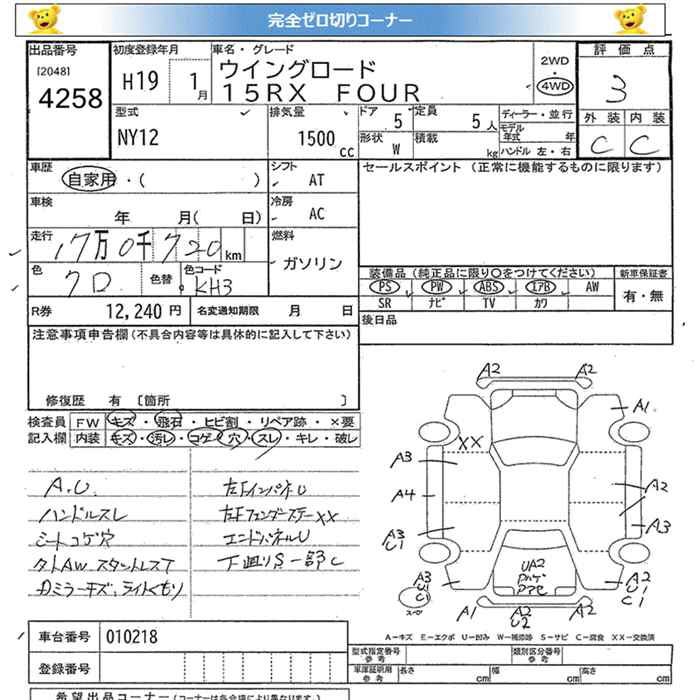 完全ゼロ切りコーナー
出品番号 初度登録年月 車名・グレード 評価点
[2048]
4258 H19 1月 ウイングロード 2WD 3
15RX FOUR 4WD
型式 排気量 ドア 定員 ディーラー・並行 外装 内装
NY12 1500cc 5 5人 モデル年式 年 C C
形状 W 積載 kg ハンドル 左・右
車歴 シフト セールスポイント (正常に機能するものに限ります)
自家用・( ) AT
車検 冷房
年 月( 日) AC
走行 燃料
17万0千720km ガソリン
色 色替 色コード 装備品 (純正品に限り○をつけてください) 新車保証書
クロ KH3 PS PW ABS エアB AW 有・無
SR ナビ TV カワ
R券 12,240円 名変通知期限 月 日 後日品
注意事項申告欄(不具合内容等は具体的に記入して下さい)
修復歴 有 [箇所 ]
検査員 FW キズ・飛石・ヒビ割・リペア跡・×要
記入欄 内装 キズ・汚レ・コゲ・穴・スレ・キレ・破レ
A.U. 左FインパネU
ハンドルスレ 左Fフェンダーステー××
シートコゲ穴 エンドパネルU
タトAWスタットレスT 下廻りS一部C
Dミラーキズ、ライトくもり
A2 A2
A1
XX
A3
A4 A2
A3 C1 A3
UA2
A3 U1 C1 A2 U1 C1
スペア
A1 A2 U2 A2
A−キズ E−エクボ U−凹み W−補修跡 S−サビ C−腐食 XX−交換済
車台番号 010218 型式指定番号 参考 類別区分番号 参考
登録番号 車庫証明用 参考 長さ cm 幅 cm 高さ cm
希望出品コーナー(コーナーは各会場により異なります。)